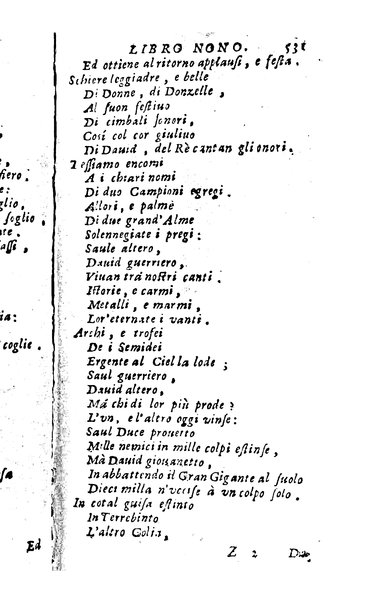 LIBRO NONO. 531
Ed ottiene al ritorno applausi, e festa.
Schiere leggiadre, e belle
Di Donne, di Donzelle,
Al suon festiuo
Di cimbali sonori,
Cosí col cor giuliuo
Di Dauid, del Rè cantan gli onori.
Tessiamo encomi
A i chiari nomi
Di duo Campioni egregi.
Allori, e palme
Di due grand'Alme
Solennegiate i pregi:
Saule altero,
Dauid guerriero,
Viuan trà nostri canti.
Istorie, e carmi,
Metalli, e marmi,
Lor'eternate i vanti.
Archi, e trofei
De i Semidei
Ergente al Ciel la lode;
Saul guerriero,
Dauid altero,
Má chi di lor più prode?
L'vn, e l'altro oggi vinse:
Saul Duce prouetto
Mille nemici in mille colpi estinse,
Mà Dauid giouanetto,
In abbattendo il Gran Gigante al suolo
Dieci milla n'vccise à vn colpo solo.
In cotal guisa estinto
In Terrebinto
L'altro Golia,
Z 2
fiero.
glio,
soglio,
assi,
ia:
coglie.
Ed